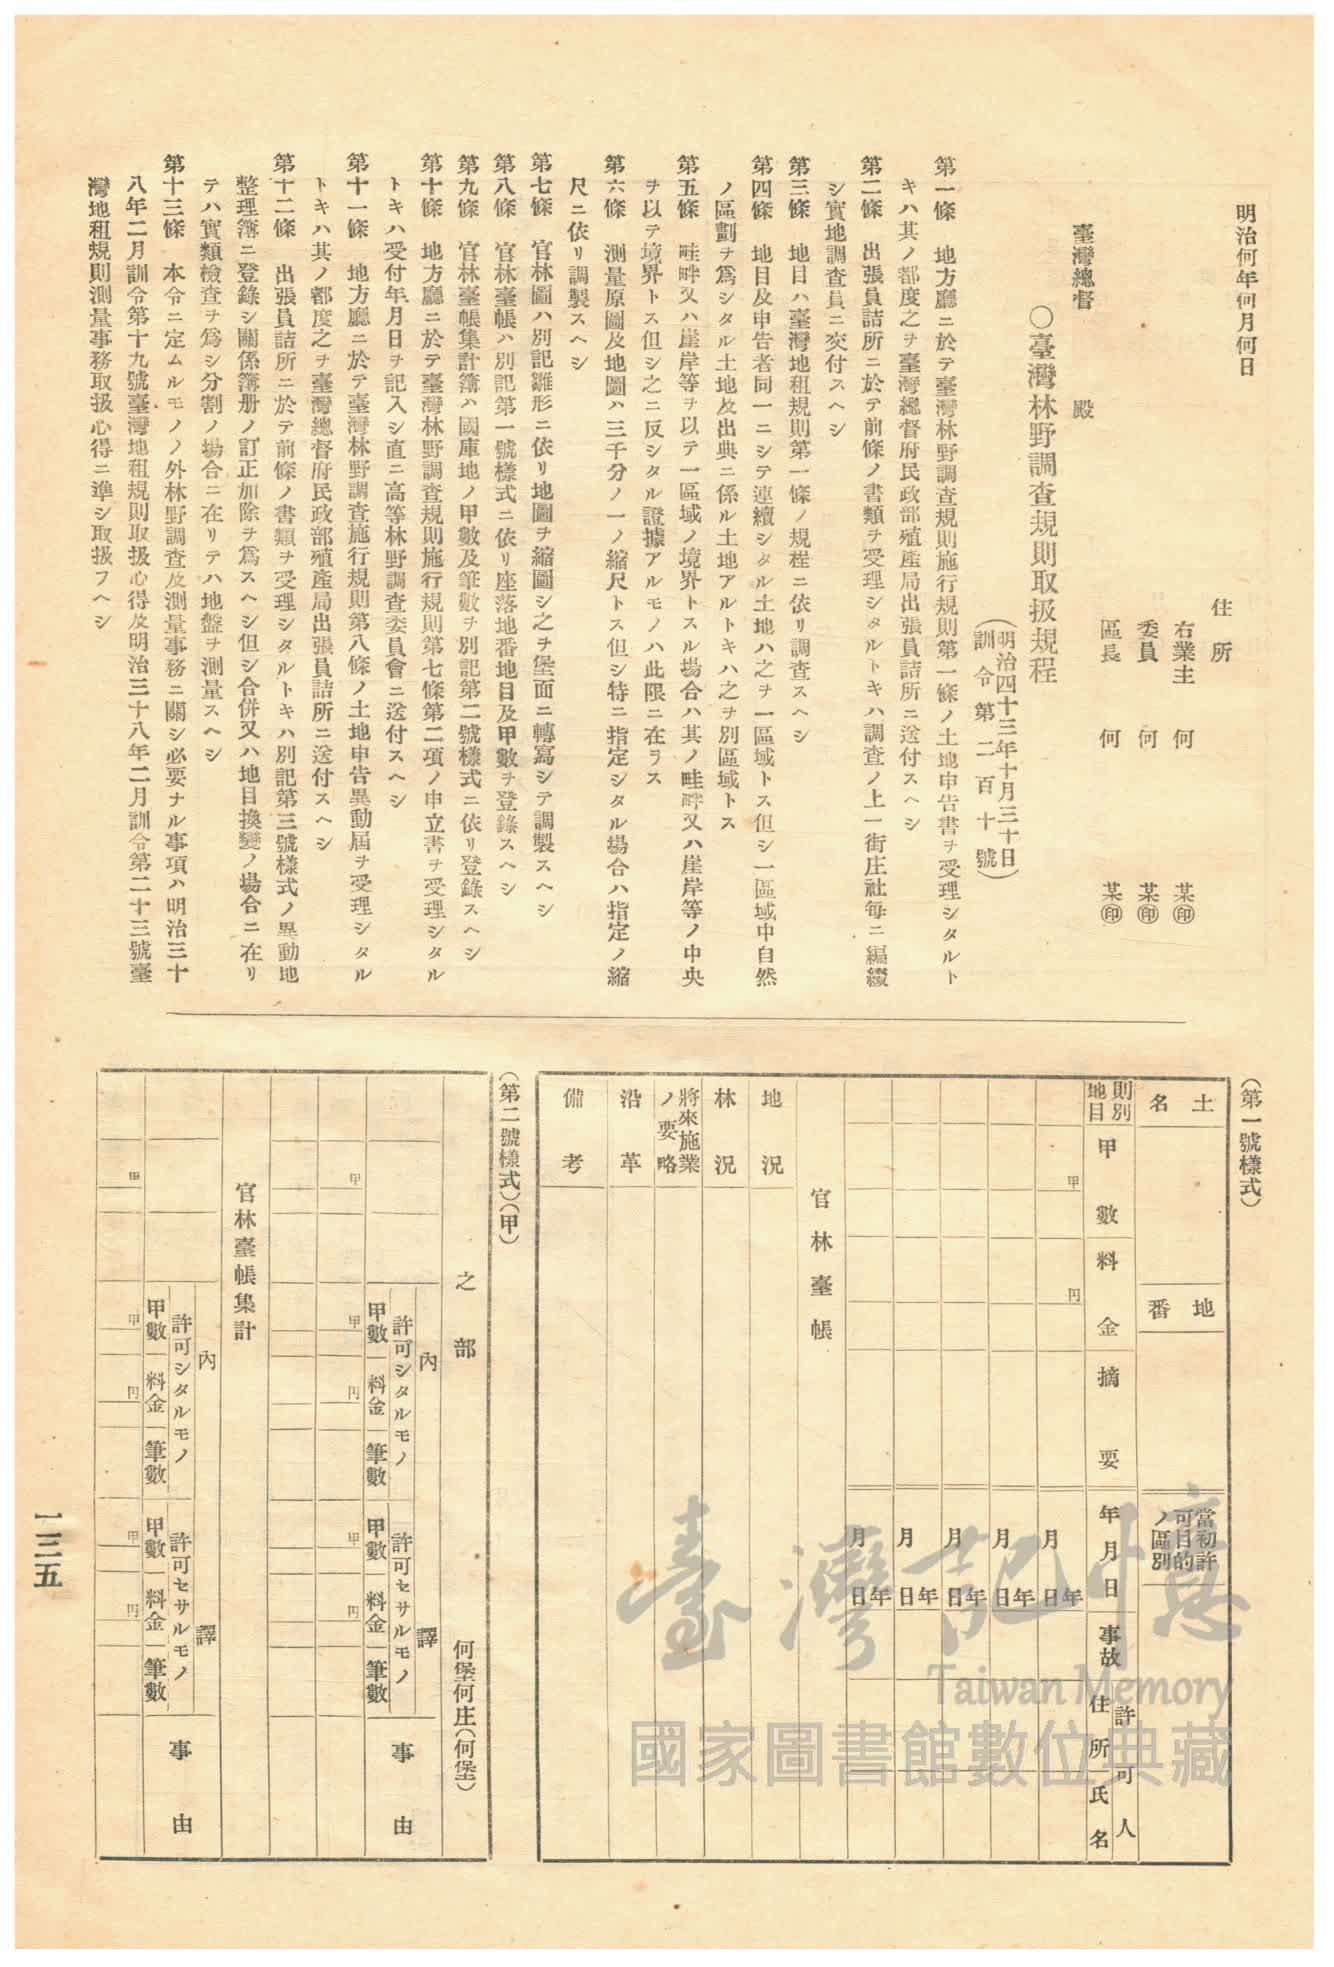 明治何年何月何日
住所
右業主　何　某㊞
委員　何　某㊞
區長　何　某㊞
臺灣總督　殿
○臺灣林野調査規則取扱規程
（明治四十三年十月三十日）
（訓令第二百十號）
第一條　地方廳ニ於テ臺灣林野調査規則施行規則第一條ノ土地申告書ヲ受理シタルト
キハ其ノ都度之ヲ臺灣總督府民政部殖產局出張員詰所ニ送付スヘシ
第二條　出張員詰所ニ於テ前條ノ書類ヲ受理シタルトキハ調査ノ上一街庄社每ニ編綴
シ實地調査員ニ交付スヘシ
第三條　地目ハ臺灣地租規則第一條ノ規程ニ依リ調査スヘシ
第四條　地目及申告者同一ニシテ連續シタル土地ハ之ヲ一區域トス但シ一區域中自然
ノ區劃ヲ爲シタル土地及出典ニ係ル土地アルトキハ之ヲ別區域トス
第五條　畦畔又ハ崖岸等ヲ以テ一區域ノ境界トスル場合ハ其ノ畦畔又ハ崖岸等ノ中央
ヲ以テ境界トス但シ之ニ反シタル證據アルモノハ此限ニ在ラス
第六條　測量原圖及地圖ハ三千分ノ一ノ縮尺トス但シ特ニ指定シタル場合ハ指定ノ縮
尺ニ依リ調製スヘシ
第七條　官林圖ハ別記雛形ニ依リ地圖ヲ縮圖シ之ヲ堡面ニ轉寫シテ調製スヘシ
第八條　官林臺帳ハ別記第一號樣式ニ依リ座落地番地目及甲數ヲ登錄スヘシ
第九條　官林臺帳集計簿ハ國庫地ノ甲數及筆數ヲ別記第二號樣式ニ依リ登錄スヘシ
第十條　地方廳ニ於テ臺灣林野調査規則施行規則第七條第二項ノ申立書ヲ受理シタル
トキハ受付年月日ヲ記入シ直ニ高等林野調査委員會ニ送付スヘシ
第十一條　地方廳ニ於テ臺灣林野調査施行規則第八條ノ土地申告異動屆ヲ受理シタル
トキハ其ノ都度之ヲ臺灣總督府民政部殖產局出張員詰所ニ送付スヘシ
第十二條　出張員詰所ニ於テ前條ノ書類ヲ受理シタルトキハ別記第三號樣式ノ異動地
整理簿ニ登錄シ關係簿册ノ訂正加除ヲ爲スヘシ但シ合併又ハ地目換變ノ場合ニ在リ
テハ實類檢査ヲ爲シ分割ノ場合ニ在リテハ地盤ヲ測量スヘシ
第十三條　本令ニ定ムルモノノ外林野調査及測量事務ニ關シ必要ナル事項ハ明治三十
八年二月訓令第十九號臺灣地租規則取扱心得及明治三十八年二月訓令第二十三號臺
灣地租規則測量事務取扱心得ニ準シ取扱フヘシ
（第一號樣式）
土名
地番
當初許可目的ノ區別
則別地目
甲數
料金
摘要
年月日
事故
許可人
住所氏名
甲
円
月日
年
月日
年
月日
年
月日
年
月日
年
官林臺帳
地況
林況
將來施業ノ要略
沿革
備考
（第二號樣式）（甲）
之部
何堡何庄（何堡）
內譯
許可シタルモノ
許可セサルモノ
甲數
料金
筆數
甲數
料金
筆數
事由
甲
甲
円
甲
円
官林臺帳集計
內譯
許可シタルモノ
許可セサルモノ
甲數
料金
筆數
甲數
料金
筆數
事由
甲
甲
円
甲
円
一三五
臺灣記憶
Taiwan Memory
國家圖書館數位典藏